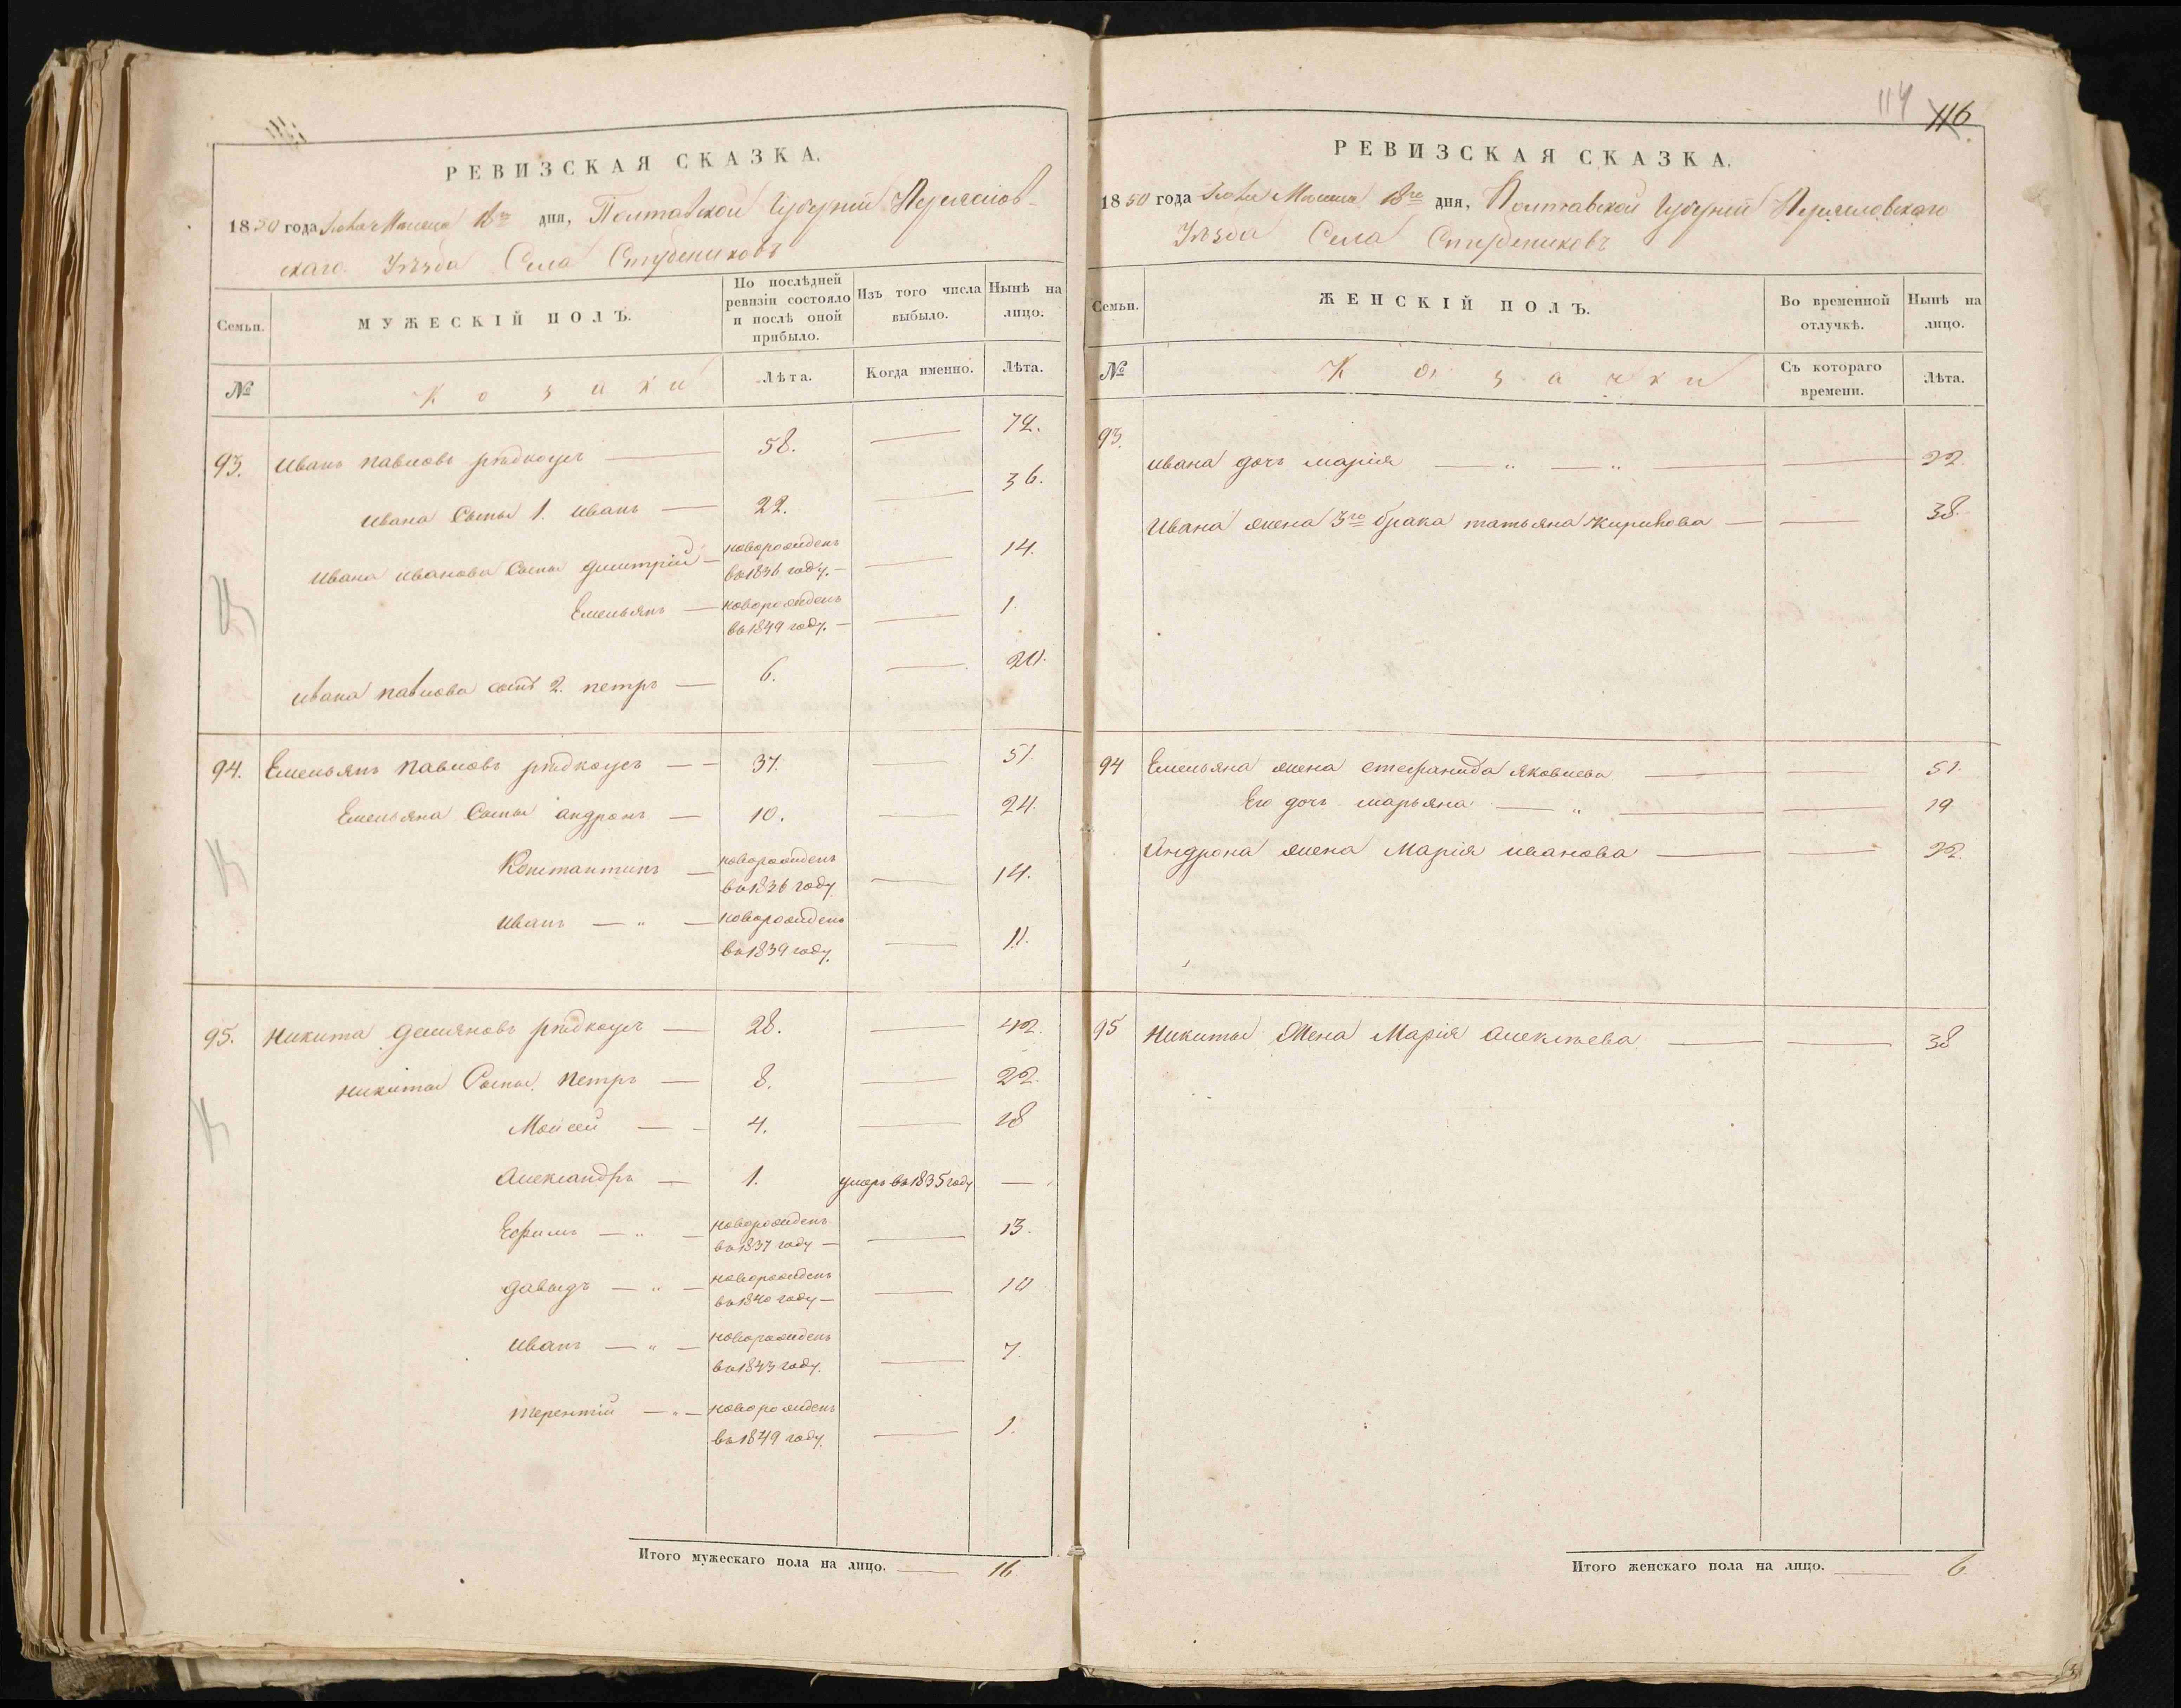 РЕВИЗСКАЯ СКАЗКА.
1850 года Іюня Месяца 18го дня, Полтавской Губерніи Переяслов-
скаго Уѣзда Села Студениковъ
Семьи.
МУЖЕСКІЙ ПОЛЪ.
По послѣдней ревизіи состояло и послѣ оной прибыло.
Изъ того числа выбыло.
Нынѣ на лицо.
№
Козаки
Лѣта.
Когда именно.
Лѣта.
93. Иванъ Павловъ рѣдкоусъ — 58. — 72.
Ивана Сыны 1. Иванъ — 22. — 36.
Ивана Иванова Сыны Димитрій — новорожденъ въ 1836 году. — 14.
Емельянъ — новорожденъ въ 1849 году. — 1.
Ивана Павлова сынъ 2. Петръ — 6. — 20.
94. Емельянъ Павловъ рѣдкоусъ — 37. — 51
Емельяна Сыны Андронъ — 10. — 24.
Константинъ — новорожденъ въ 1836 году — 14.
Иванъ — „ — новорожденъ въ 1839 году. — 11.
95. Никита Демяновъ рѣдкоусъ — 28. — 42.
Никиты Сыны Петръ — 8. — 22.
Мойсей — 4. — 18
Александръ — 1. умеръ въ 1835 году —
Ефимъ — „ — новорожденъ въ 1837 году — 13.
Давыдъ — „ — новорожденъ въ 1840 году — 10
Иванъ — „ — новорожденъ въ 1843 году. — 7.
Терентій — „ — новорожденъ въ 1849 году. — 1.
Итого мужескаго пола на лицо. — 16
114
116
РЕВИЗСКАЯ СКАЗКА.
1850 года Іюня Месяца 18го дня, Полтавской Губерніи Переясловскаго
Уѣзда Села Студениковъ
Семьи.
ЖЕНСКІЙ ПОЛЪ.
Во временной отлучкѣ.
Нынѣ на лицо.
№
Козачки
Съ котораго времени.
Лѣта.
93. Ивана дочь Марія — „ — „ — 22.
Ивана жена 3го брака Татьяна Кирикова — 38.
94 Емельяна жена Стефанида Яковлева — 51.
Его дочь Марьяна — „ — 19
Андрона жена Марія Иванова — 22.
95 Никиты Жена Марія Алексѣева — 38
Итого женскаго пола на лицо. — 6